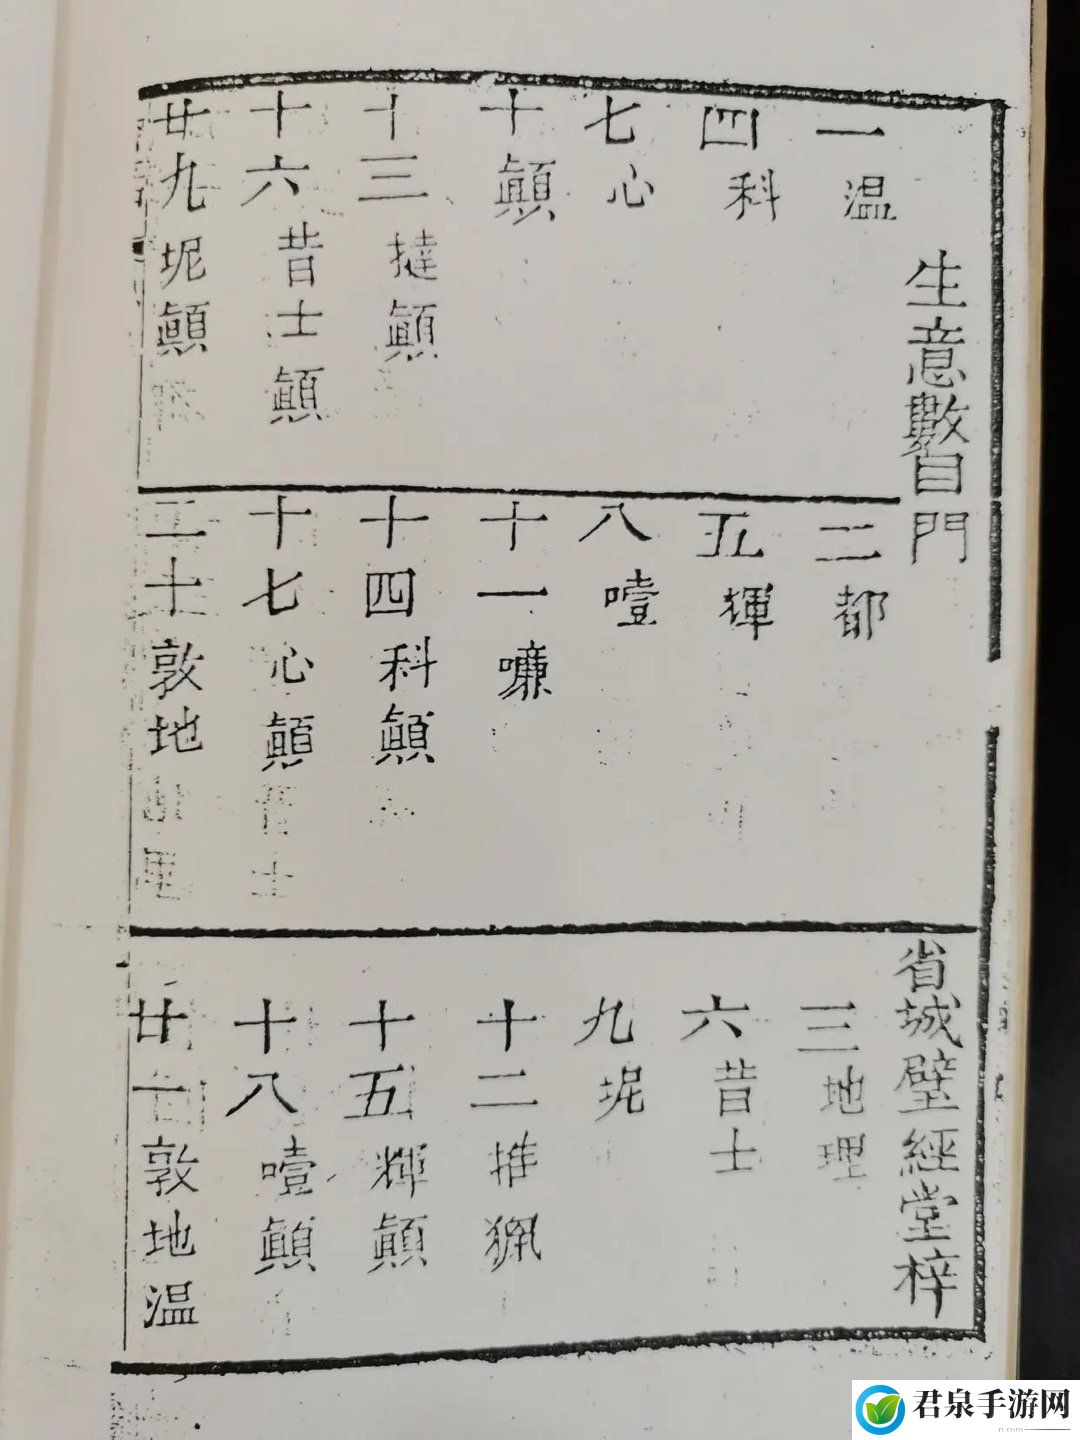 生意數目門
省城壁經堂梓
一 温
二 都
三 地理
四 科
五 㧑
六 昔士
七 心
八 噎
九 坭
十 顛
十一 嚹
十二 推
十三 撻顛
十四 科顛
十五 輝顛
十六 昔士顛
十七 心顛
十八 噎顛
廿九 坭顛
二十 敦地
廿一 敦地温
君泉手游网